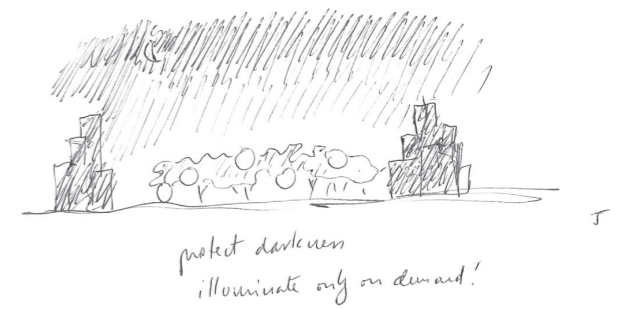 J
protect darkness
illuminate only on demand!